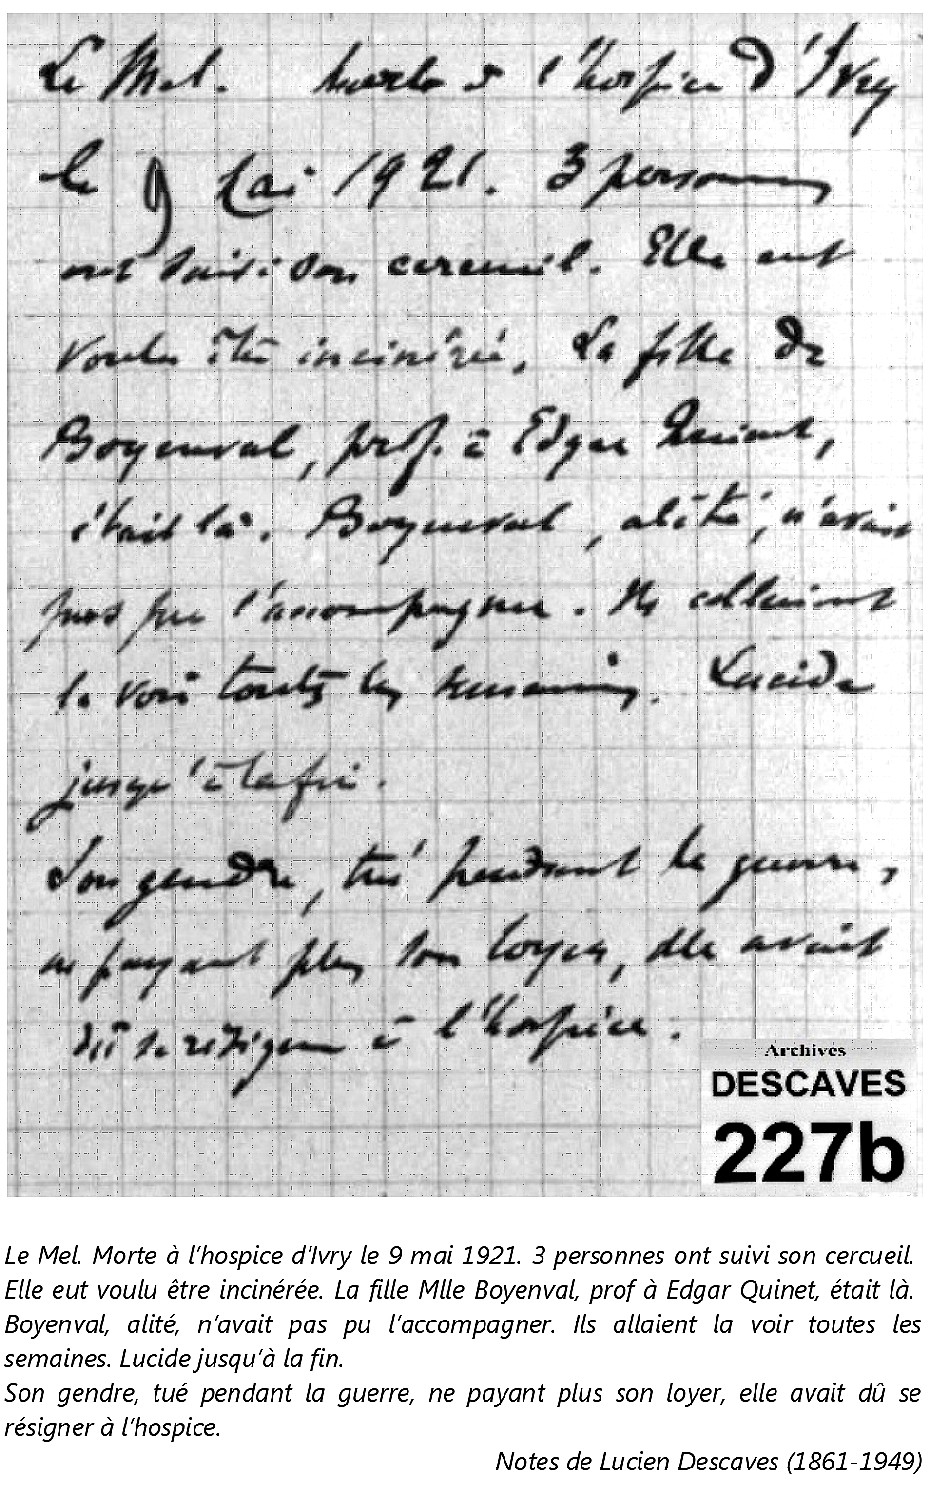 Le Mel. Morte à l'hospice d'Ivry
le 9 Mai 1921. 3 personnes
ont suivi son cercueil. Elle eut
voulu être incinérée. La fille de
Boyenval, prof. à Edgar Quinet,
était là. Boyenval, alité, n'avait
pas pu l'accompagner. Ils allaient
la voir toutes les semaines. Lucide
jusqu'à la fin.
Son gendre, tué pendant la guerre,
ne payant plus son loyer, elle avait
dû se résigner à l'hospice.
Archives
DESCAVES
227b
Le Mel. Morte à l'hospice d'Ivry le 9 mai 1921. 3 personnes ont suivi son cercueil.
Elle eut voulu être incinérée. La fille Mlle Boyenval, prof à Edgar Quinet, était là.
Boyenval, alité, n'avait pas pu l'accompagner. Ils allaient la voir toutes les
semaines. Lucide jusqu'à la fin.
Son gendre, tué pendant la guerre, ne payant plus son loyer, elle avait dû se
résigner à l'hospice.
Notes de Lucien Descaves (1861-1949)